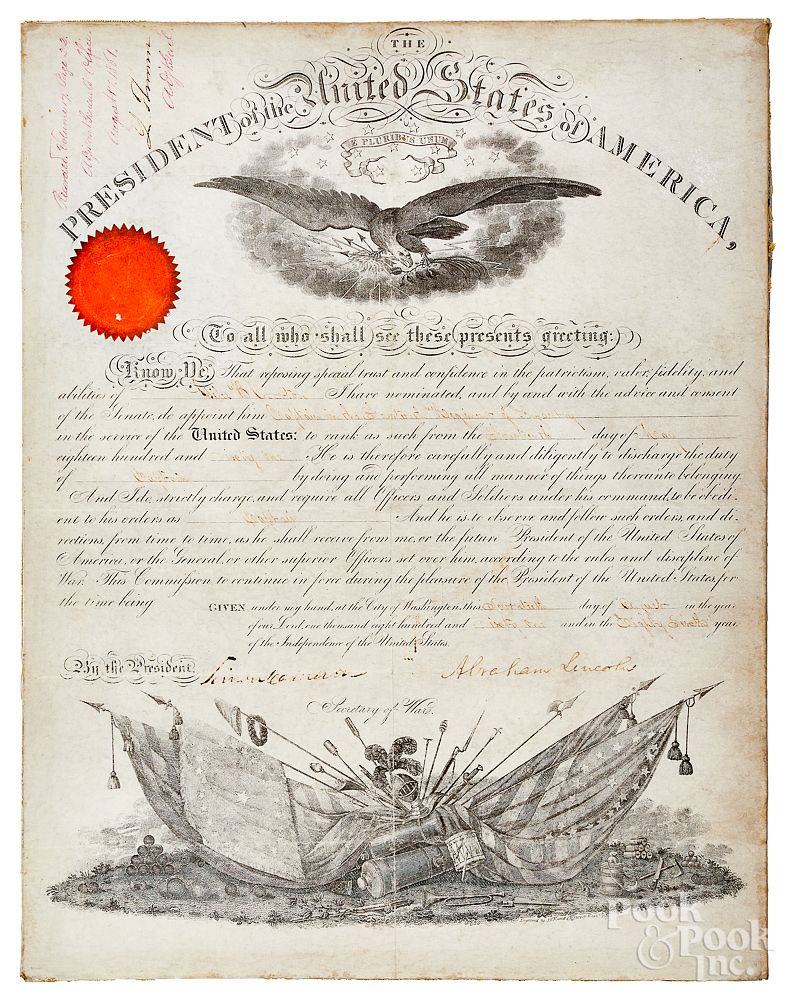 Recorded, Volume 17, Page 22.
Adjutant General's Office
August 1861.
L. Thomas
Adjt. Genl.
THE
United States
PRESIDENT of the
of AMERICA,
E PLURIBUS UNUM
To all who shall see these presents greeting:
Know Ye, That reposing special trust and confidence in the patriotism, valor, fidelity, and
abilities of I have nominated, and by and with the advice and consent
of the Senate, do appoint him Captain in the Regiment of
in the service of the United States: to rank as such from the day of May
eighteen hundred and sixty one He is therefore carefully and diligently to discharge the duty
of Captain by doing and performing all manner of things thereunto belonging.
And I do strictly charge, and require all Officers and Soldiers under his command, to be obedi-
ent to his orders as Captain And he is to observe and follow such orders, and di-
rections, from time to time, as he shall receive from me, or the future President of the United States of
America, or the General, or other superior Officers set over him, according to the rules and discipline of
War. This Commission to continue in force during the pleasure of the President of the United States, for
the time being.
GIVEN under my hand, at the City of Washington, this day of August in the year
of our Lord, one thousand eight hundred and sixty one and in the Eighty Sixth year
of the Independence of the United States.
By the President
Simon Cameron
Abraham Lincoln
Secretary of War.
POOK
& POOK
INC.